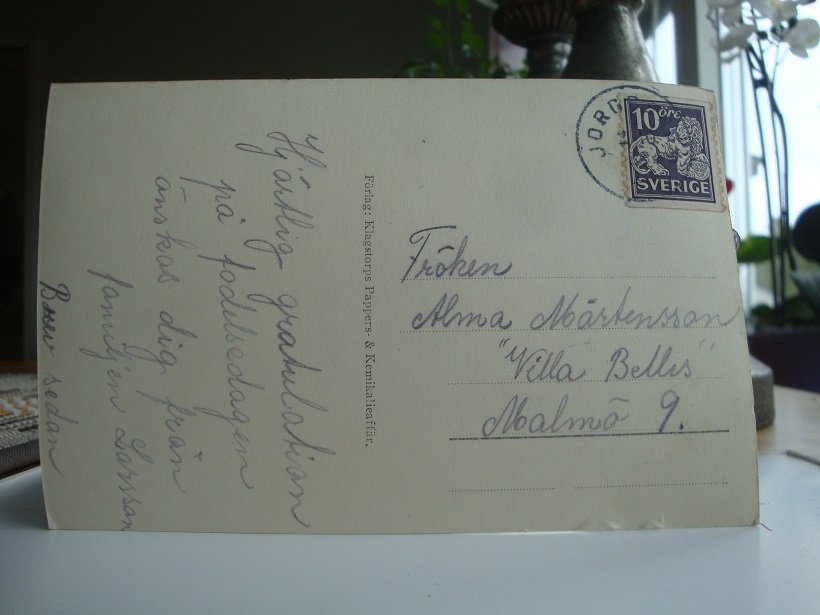 Hjärtlig gratulation
på födelsedagen
önskas dig från
familjen Larsson
Brev sedan
Förlag: Klagstorps Pappers- & Kemikalieaffär.
JORD
10 öre
SVERIGE
Fröken
Alma Mårtensson
"Villa Bellis"
Malmö 9.